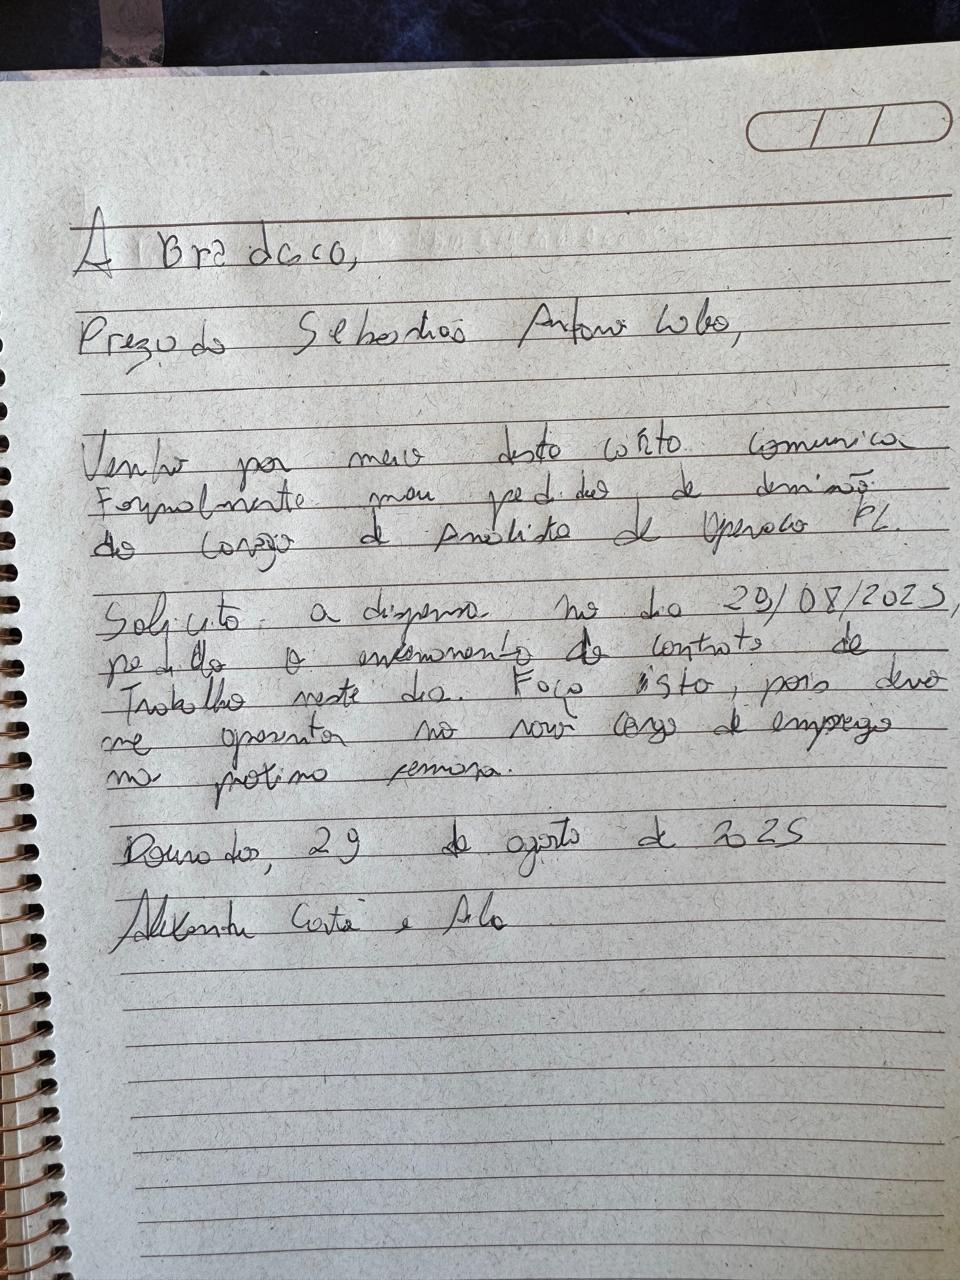 A Bradesco,
Prezado Sebastião Antonio Lobo,
Venho por meio desta carta comunica
Formalmente meu pedido de demissão
do cargo de Analista de Operação PL.
Solicito a dispensa no dia 29/08/2025,
pedido o encerramento do contrato de
Trabalho neste dia. Faço isto, pois devo
me apresentar no novo cargo de emprego
na proxima semana.
Dourados, 29 de agosto de 2025
Alexandre Costa e